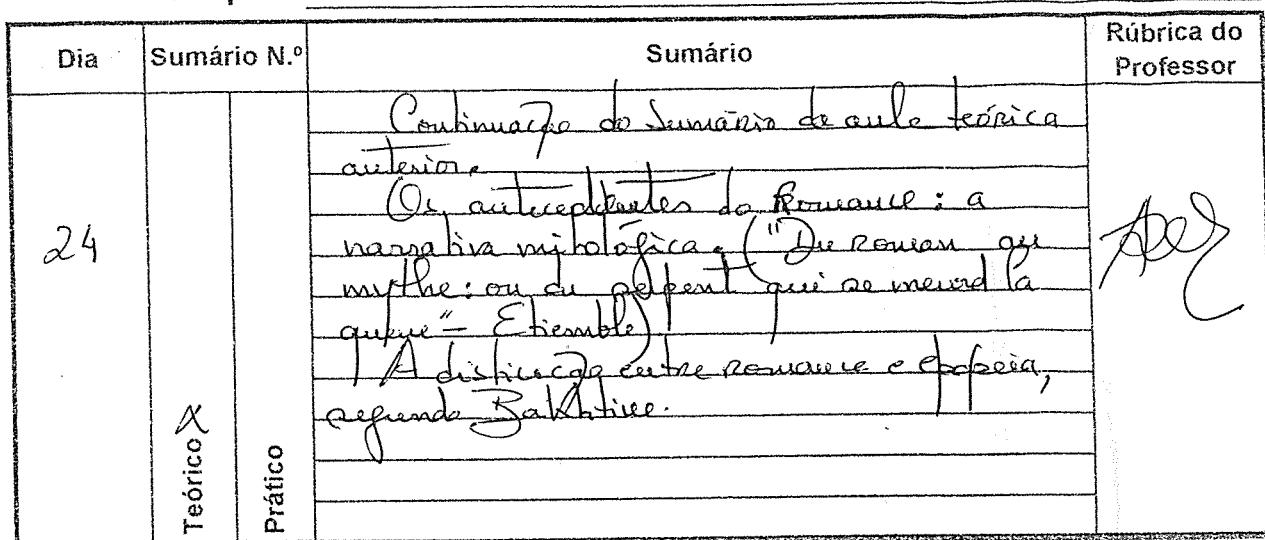 Dia
Sumário N.º
Sumário
Rúbrica do
Professor
24
Teórico X
Prático
Continuação do Sumário da aula teórica
anterior.
Os antecedentes do Romance: a
narrativa mitológica. ("Du roman au
mythe: ou du serpent qui se meurd la
queue" – Etiemble)
A distinção entre romance e epopeia,
segundo Bakhtine.